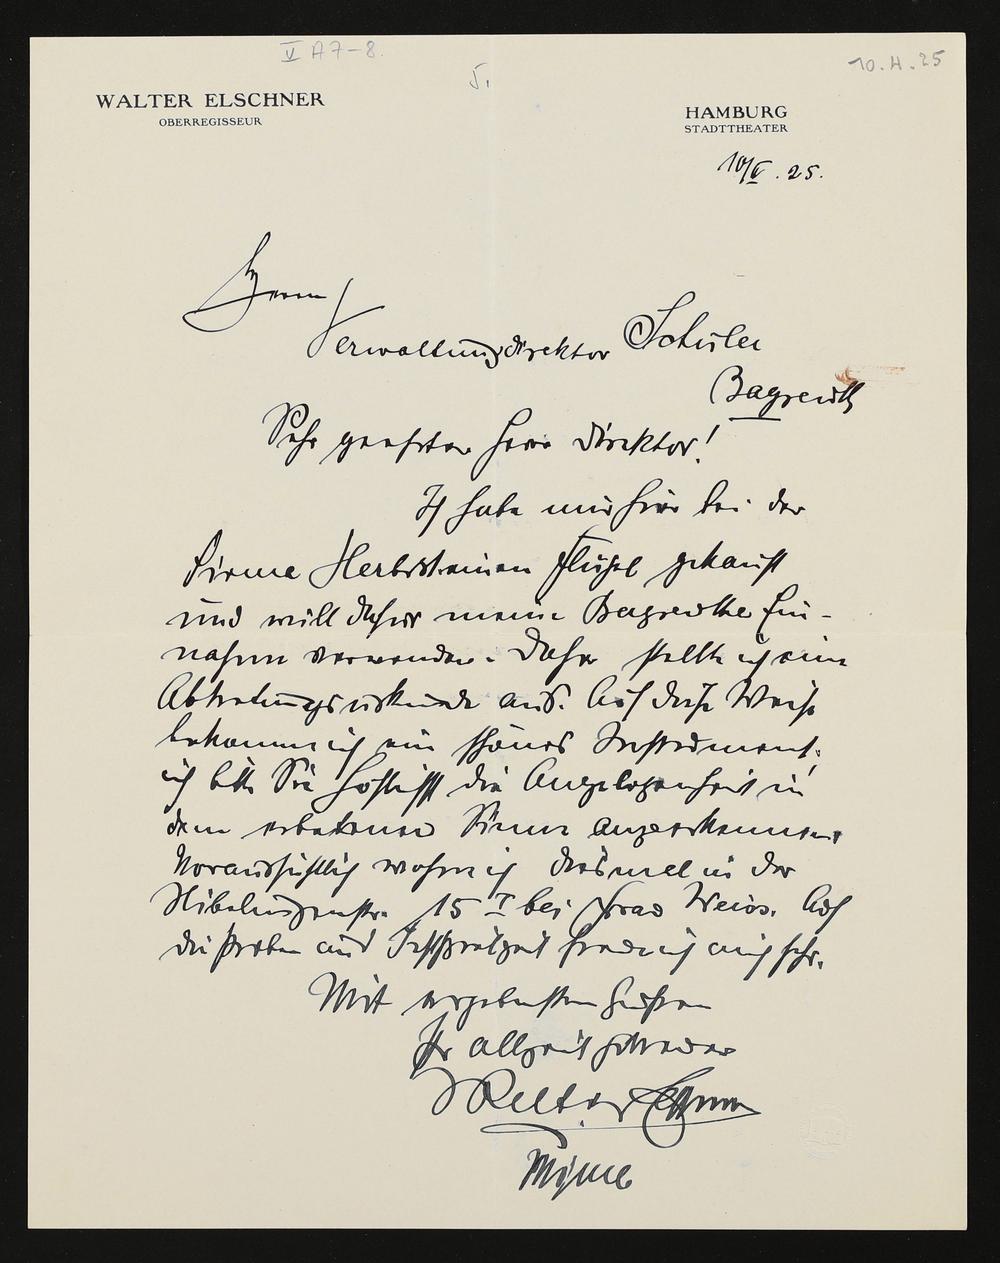 V A7-8.
5.
10.4.25
WALTER ELSCHNER
OBERREGISSEUR
HAMBURG
STADTTHEATER
10/V. 25.
Herrn
Verwaltungsdirektor Schuler
Bayreuth
Sehr geehrter Herr Direktor!
Ich habe mir hier bei der
Firma Herbst einen Flügel gekauft
und will dafür meine Bayreuther Ein-
nahmen verwenden. Daher stellte ich eine
Abtretungsurkunde aus. Auf diese Weise
bekomme ich ein schönes Instrument.
ich bitte Sie höflichst die Angelegenheit in
dem erbetenen Sinne anzuerkennen.
Voraussichtlich wohne ich diesmal in der
Nibelungenstr. 15 I bei Frau Weiss. Auf
die Proben und Festspielzeit freue ich mich sehr.
Mit ergebensten Grüßen
Ihr allzeit getreuer
Walter Elschner
Mime